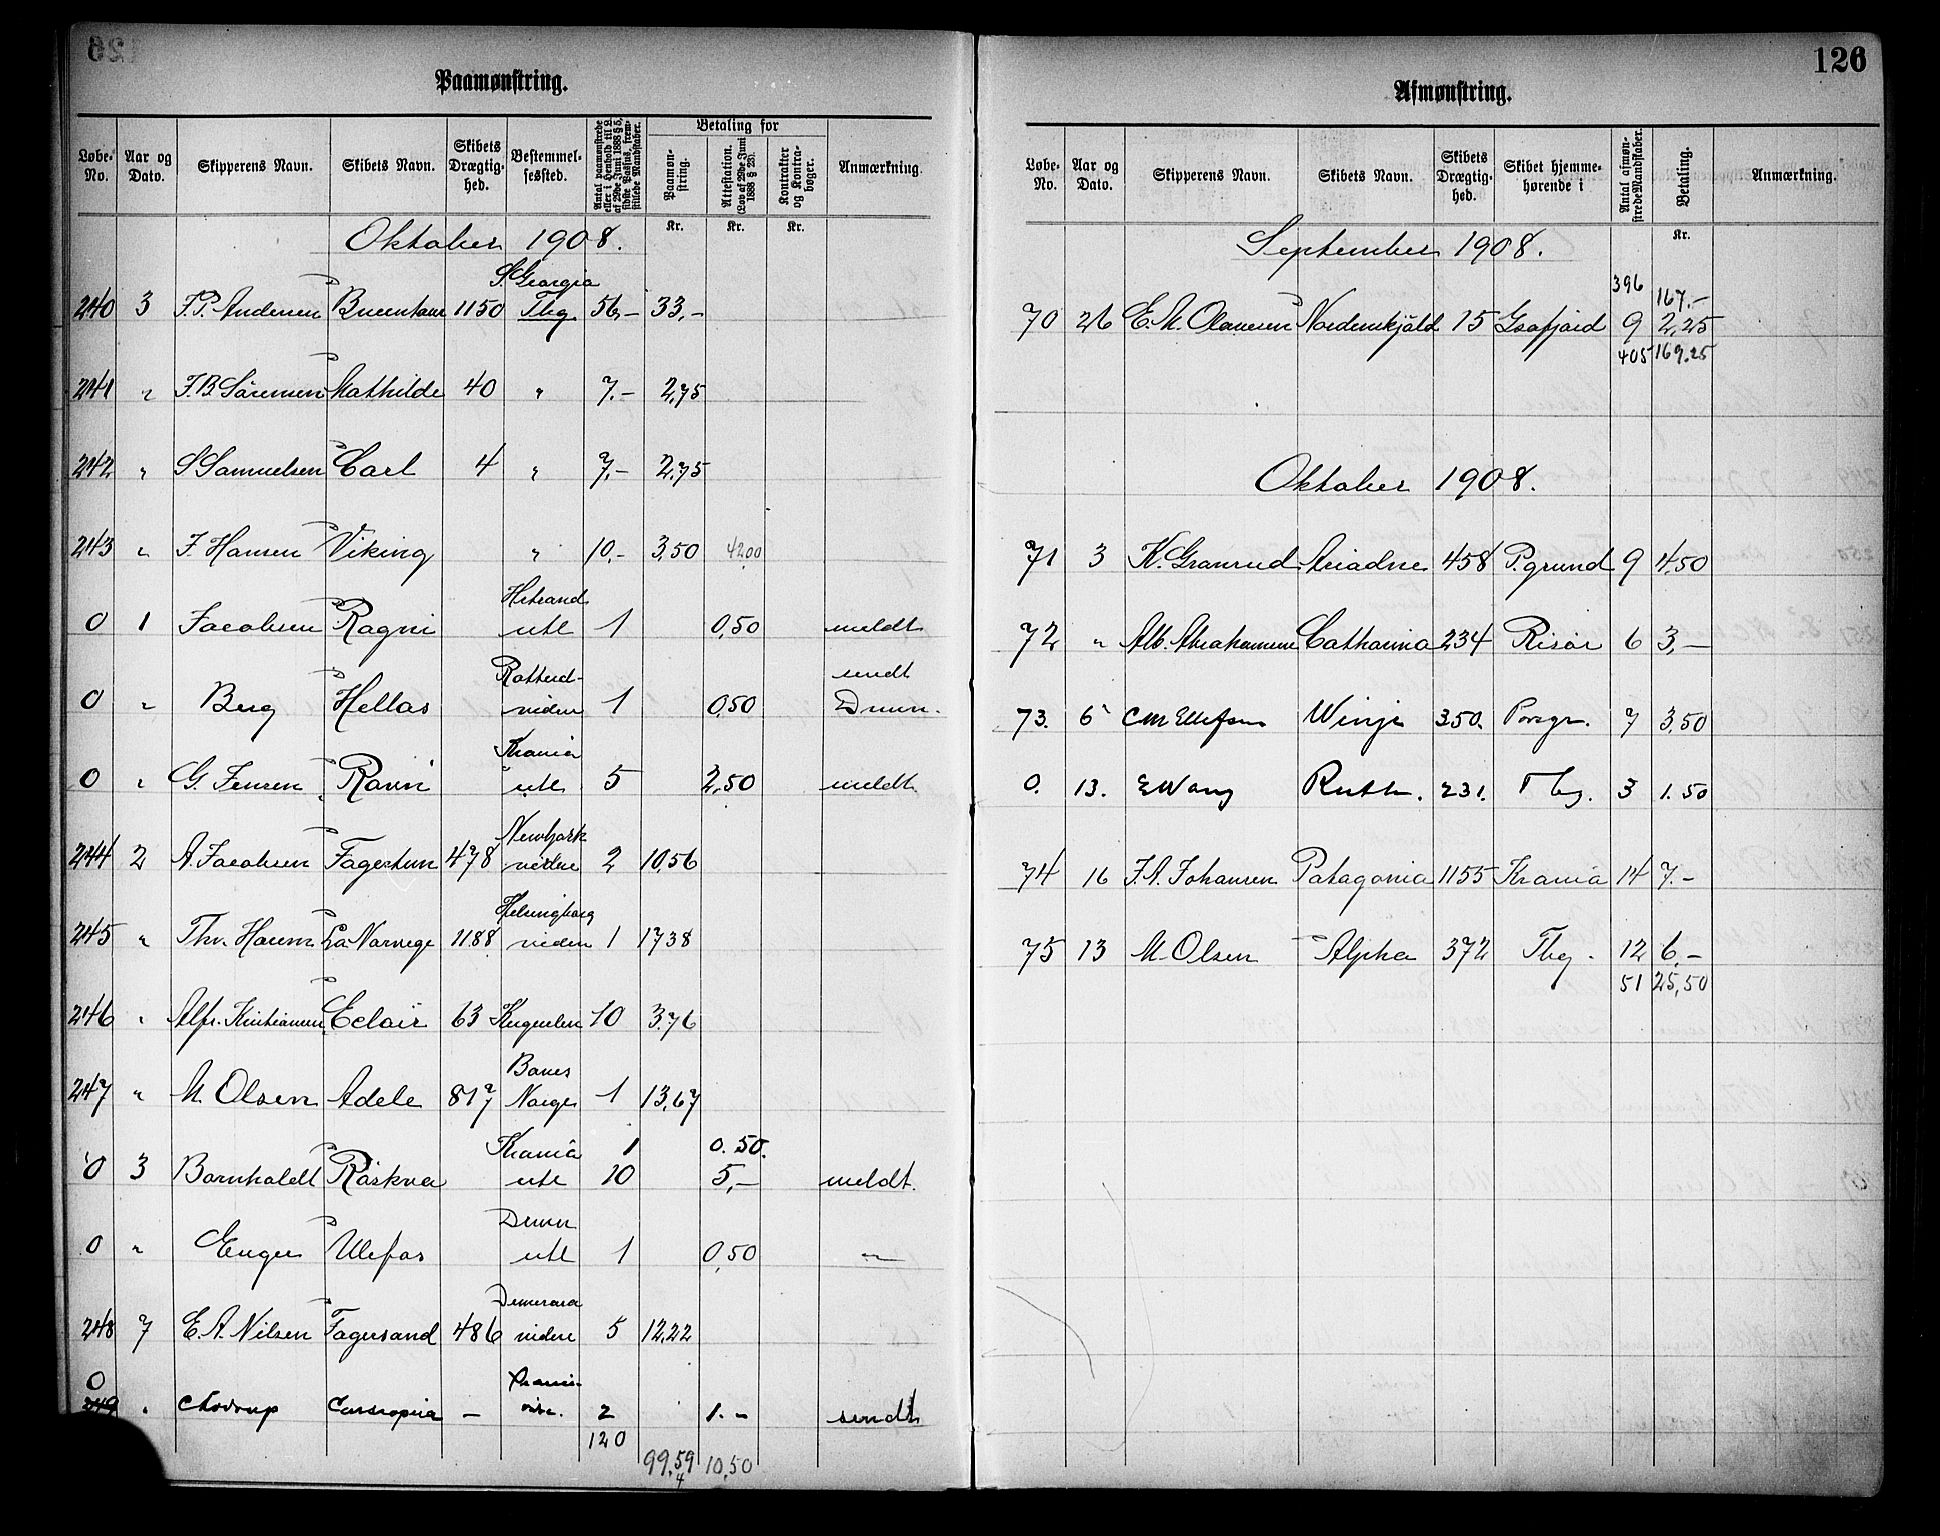 Paamønstring.
Løbe-No. | Aar og Dato. | Skipperens Navn. | Skibets Navn. | Skibets Drægtig-hed. | Bestemmel-sessted. | Antal paamønstrede eller i Henhold til L. af 29de Juni 1888 § 5, sidste Passus, frem-stillede Mandskaber. | Betaling for | Paamøn-string. | Attestation. (Lov af 29de Juni 1888 § 23). | Kontrakter og Kontra-bøger. | Anmærkning.
Kr. | Kr. | Kr.
Oktober 1908.
S. Georgia
240 | 3 | F. P. Andersen | | 1150 | Tbg | 56,- | 33,-
241 | " | F. B. Sörensen | Mathilde | 40 | " | 7,- | 2,75
242 | " | S Samuelsen | Carl | 4 | " | 7,- | 2,75
243 | " | F. Hansen | Viking | | " | 10,- | 3,50 | 42,00
0 | 1 | Jacobsen | Ragni | | utl | 1 | | 0,50 | meldt
sendt
0 | " | Berg | Hellas | | videre | 1 | | 0,50 | Dmen.
Krania
0 | " | G. Jensen | Ravn | | utl | 5 | | 2,50 | meldt
NewYork
244 | 2 | A. Jacobsen | Fagertun | 478 | videre | 2 | 10,56
Helsingborg
245 | " | Thv. Hansen | La Norvege | 1188 | videre | 1 | 17,38
246 | " | Alfr. Kristiansen | Eclair | 63 | Kerguelen | 10 | 3,76
247 | " | M. Olsen | Adele | 817 | Norge | 1 | 13,67
Krania | 1 | 0.50.
0 | 3 | Bornholdt | Röskva | | utl | 10 | | 5,- | meldt.
Dmen
0 | " | Enger | Ulefos | | utl | 1 | | 0,50 | "
Demerara
248 | 7 | E. A. Nilsen | Fagersand | 486 | videre | 5 | 12,22
0
249 | " | | | - | | 2 | | 1.- | sendt
120 | 99,59 | 10,50
4
126
Afmønstring.
Løbe-No. | Aar og Dato. | Skipperens Navn. | Skibets Navn. | Skibets Drægtig-hed. | Skibet hjemme-hørende i | Antal afmøn-strede Mandskaber. | Betaling. | Anmærkning.
Kr.
September 1908.
396 | 167.-
70 | 26 | E. M. Olaussen | Nordenskjöld | 15 | | 9 | 2,25
405 | 169.25
Oktober 1908.
71 | 3 | K. Granrud | Ariadne | 458 | P.grund | 9 | 4,50
72 | " | Alb. Abrahamsen | Catharina | 234 | Risör | 6 | 3,-
73. | 6 | CM Ellefsen | Winje | 350. | Porsgr. | 7 | 3,50
0. | 13. | E Wang | Ruth. | 231. | Tbg. | 3 | 1.50
74 | 16 | J. A. Johansen | Patagonia | 1155 | Krania | 14 | 7.-
75 | 13 | M. Olsen | Alpha | 372 | Tbg. | 12 | 6,-
51 | 25,50